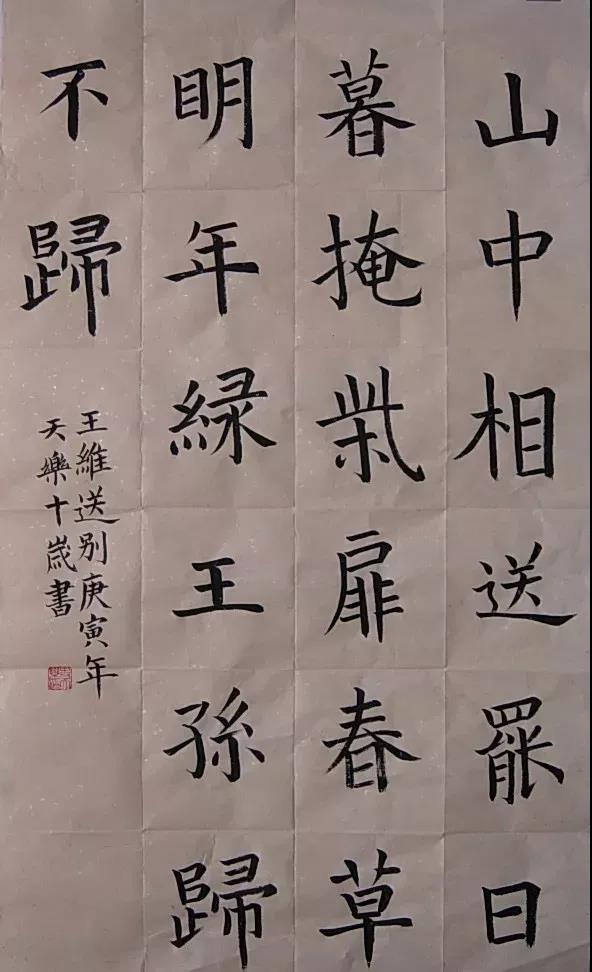 山中相送罷日
暮掩柴扉春草
明年緑王孫歸
不歸
王維送别庚寅年
天樂十歲書